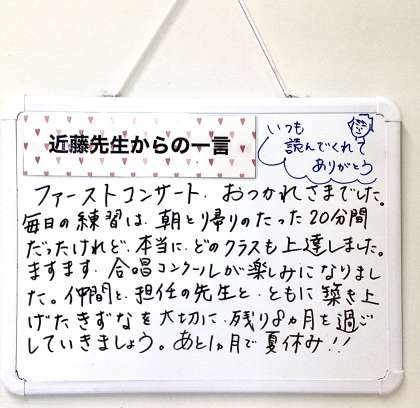 近藤先生からの一言
いつも
読んでくれて
ありがとう
ファーストコンサート、おつかれさまでした。
毎日の練習は、朝と帰りのたった20分間
だったけれど、本当に、どのクラスも上達しました。
ますます、合唱コンクールが楽しみになりまし
た。仲間と、担任の先生と、ともに築き上
げたきずなを大切に、残り8ヵ月を過ご
していきましょう。あと1ヵ月で夏休み!!